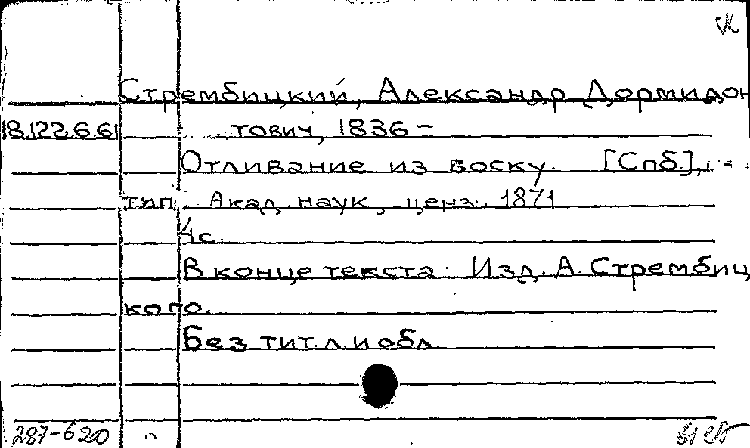 Стрембицкий, Александр Дормидон
18.122.6.61 тович, 1836 –
Отливание из воску. [Спб],
тип. Акад. наук, ценз. 1871
4с.
В конце текста: Изд. А. Стрембиц
кого.
Без тит. л. и обл.
287-620